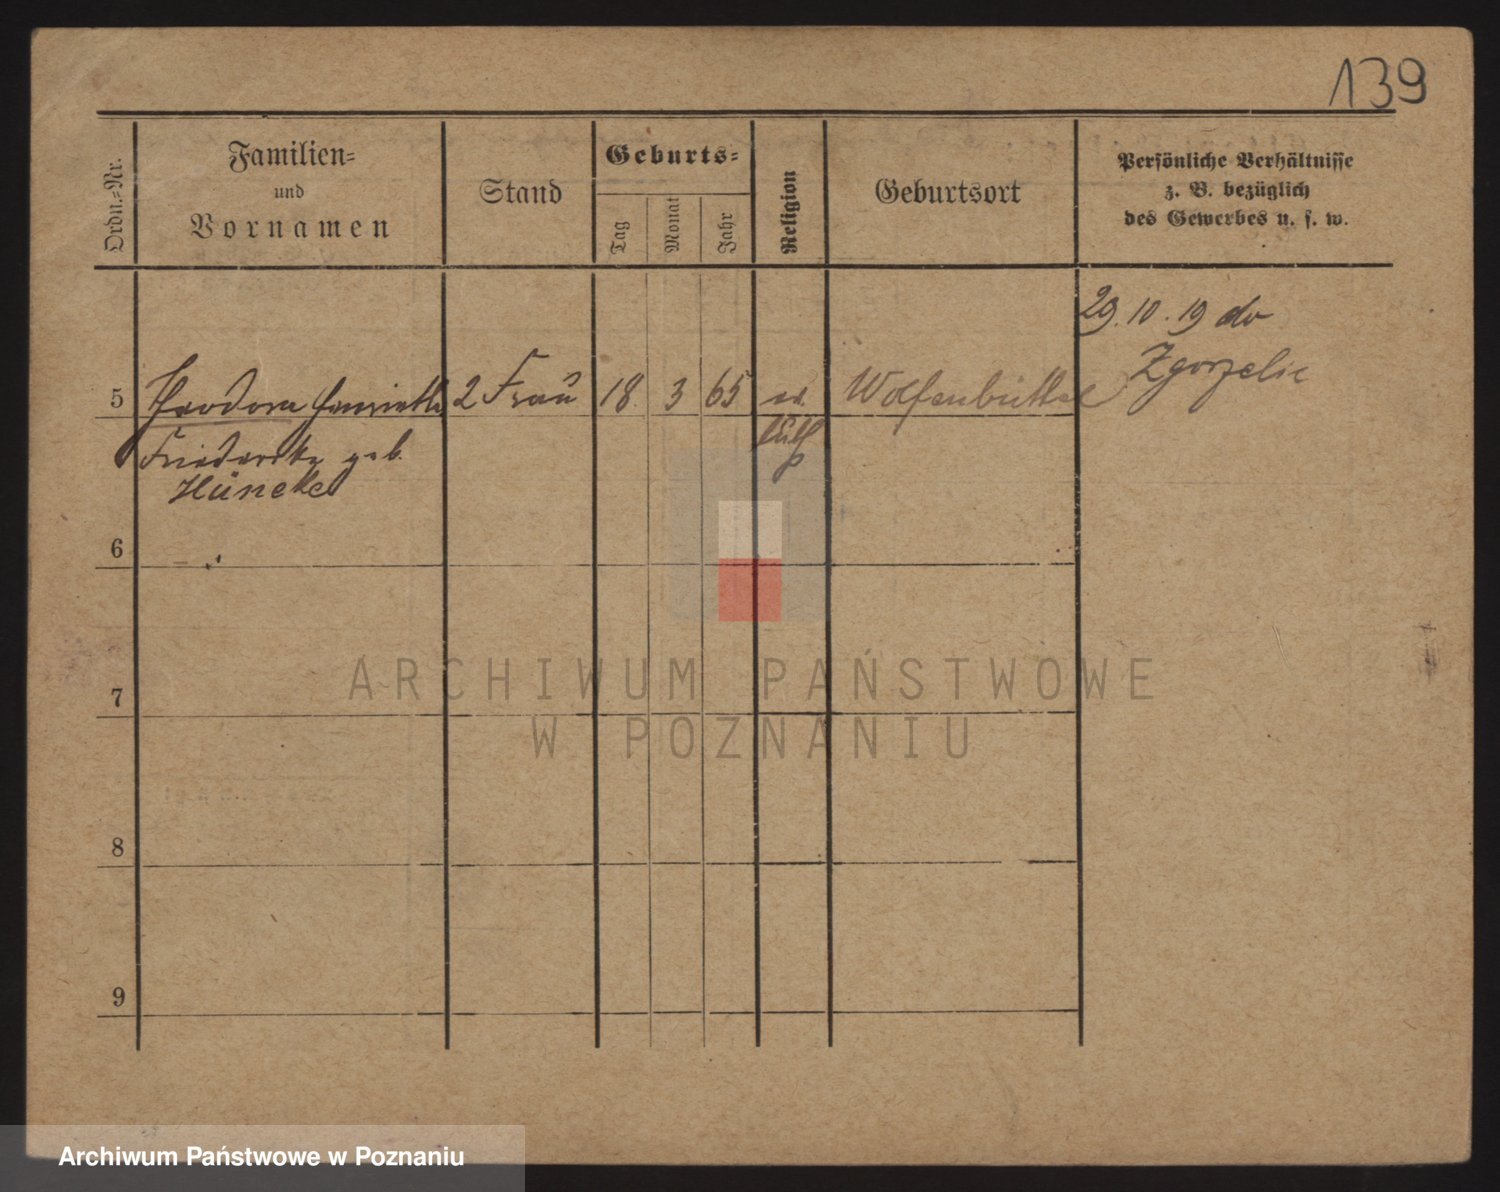 139
Ordn.=Nr.
Familien=
und
Vornamen
Stand
Geburts=
Tag
Monat
Jahr
Religion
Geburtsort
Persönliche Verhältnisse
z. B. bezüglich
des Gewerbes u. s. w.
29.10.19 do
Zgorzelic
5 Theodora Henriette 2 Frau 18 3 65 ev. Wolfenbüttel
luth
Friederike geb.
Hüneke
6
7
8
9
ARCHIWUM PAŃSTWOWE
W POZNANIU
Archiwum Państwowe w Poznaniu